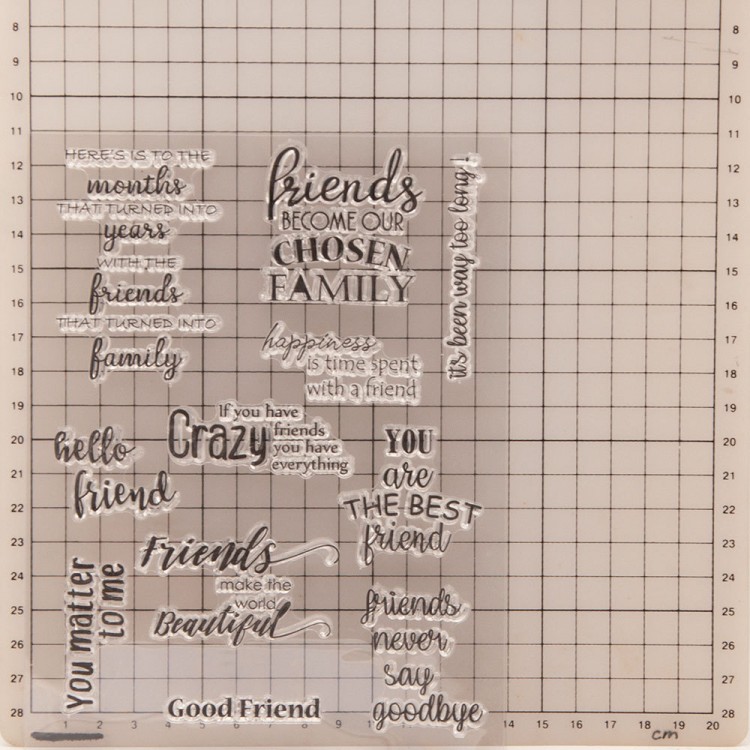 8
9
10
11
12
13
14
15
16
17
18
19
20
21
22
23
24
25
26
27
28
HERE'S IS TO THE
months
THAT TURNED INTO
years
WITH THE
friends
THAT TURNED INTO
family
friends
BECOME OUR
CHOSEN
FAMILY
it's been way too long!
happiness
is time spent
with a friend
If you have
Crazy friends
you have
everything
hello
friend
YOU
are
THE BEST
friend
Friends
make the
world
Beautiful
You matter
to me
friends
never
say
goodbye
Good Friend
8
9
10
11
12
13
14
15
16
17
18
19
20
21
22
23
24
25
26
27
28
1 2 3 4 5 6 7 8 9 10 11 12 13 14 15 16 17 18 19 20
cm